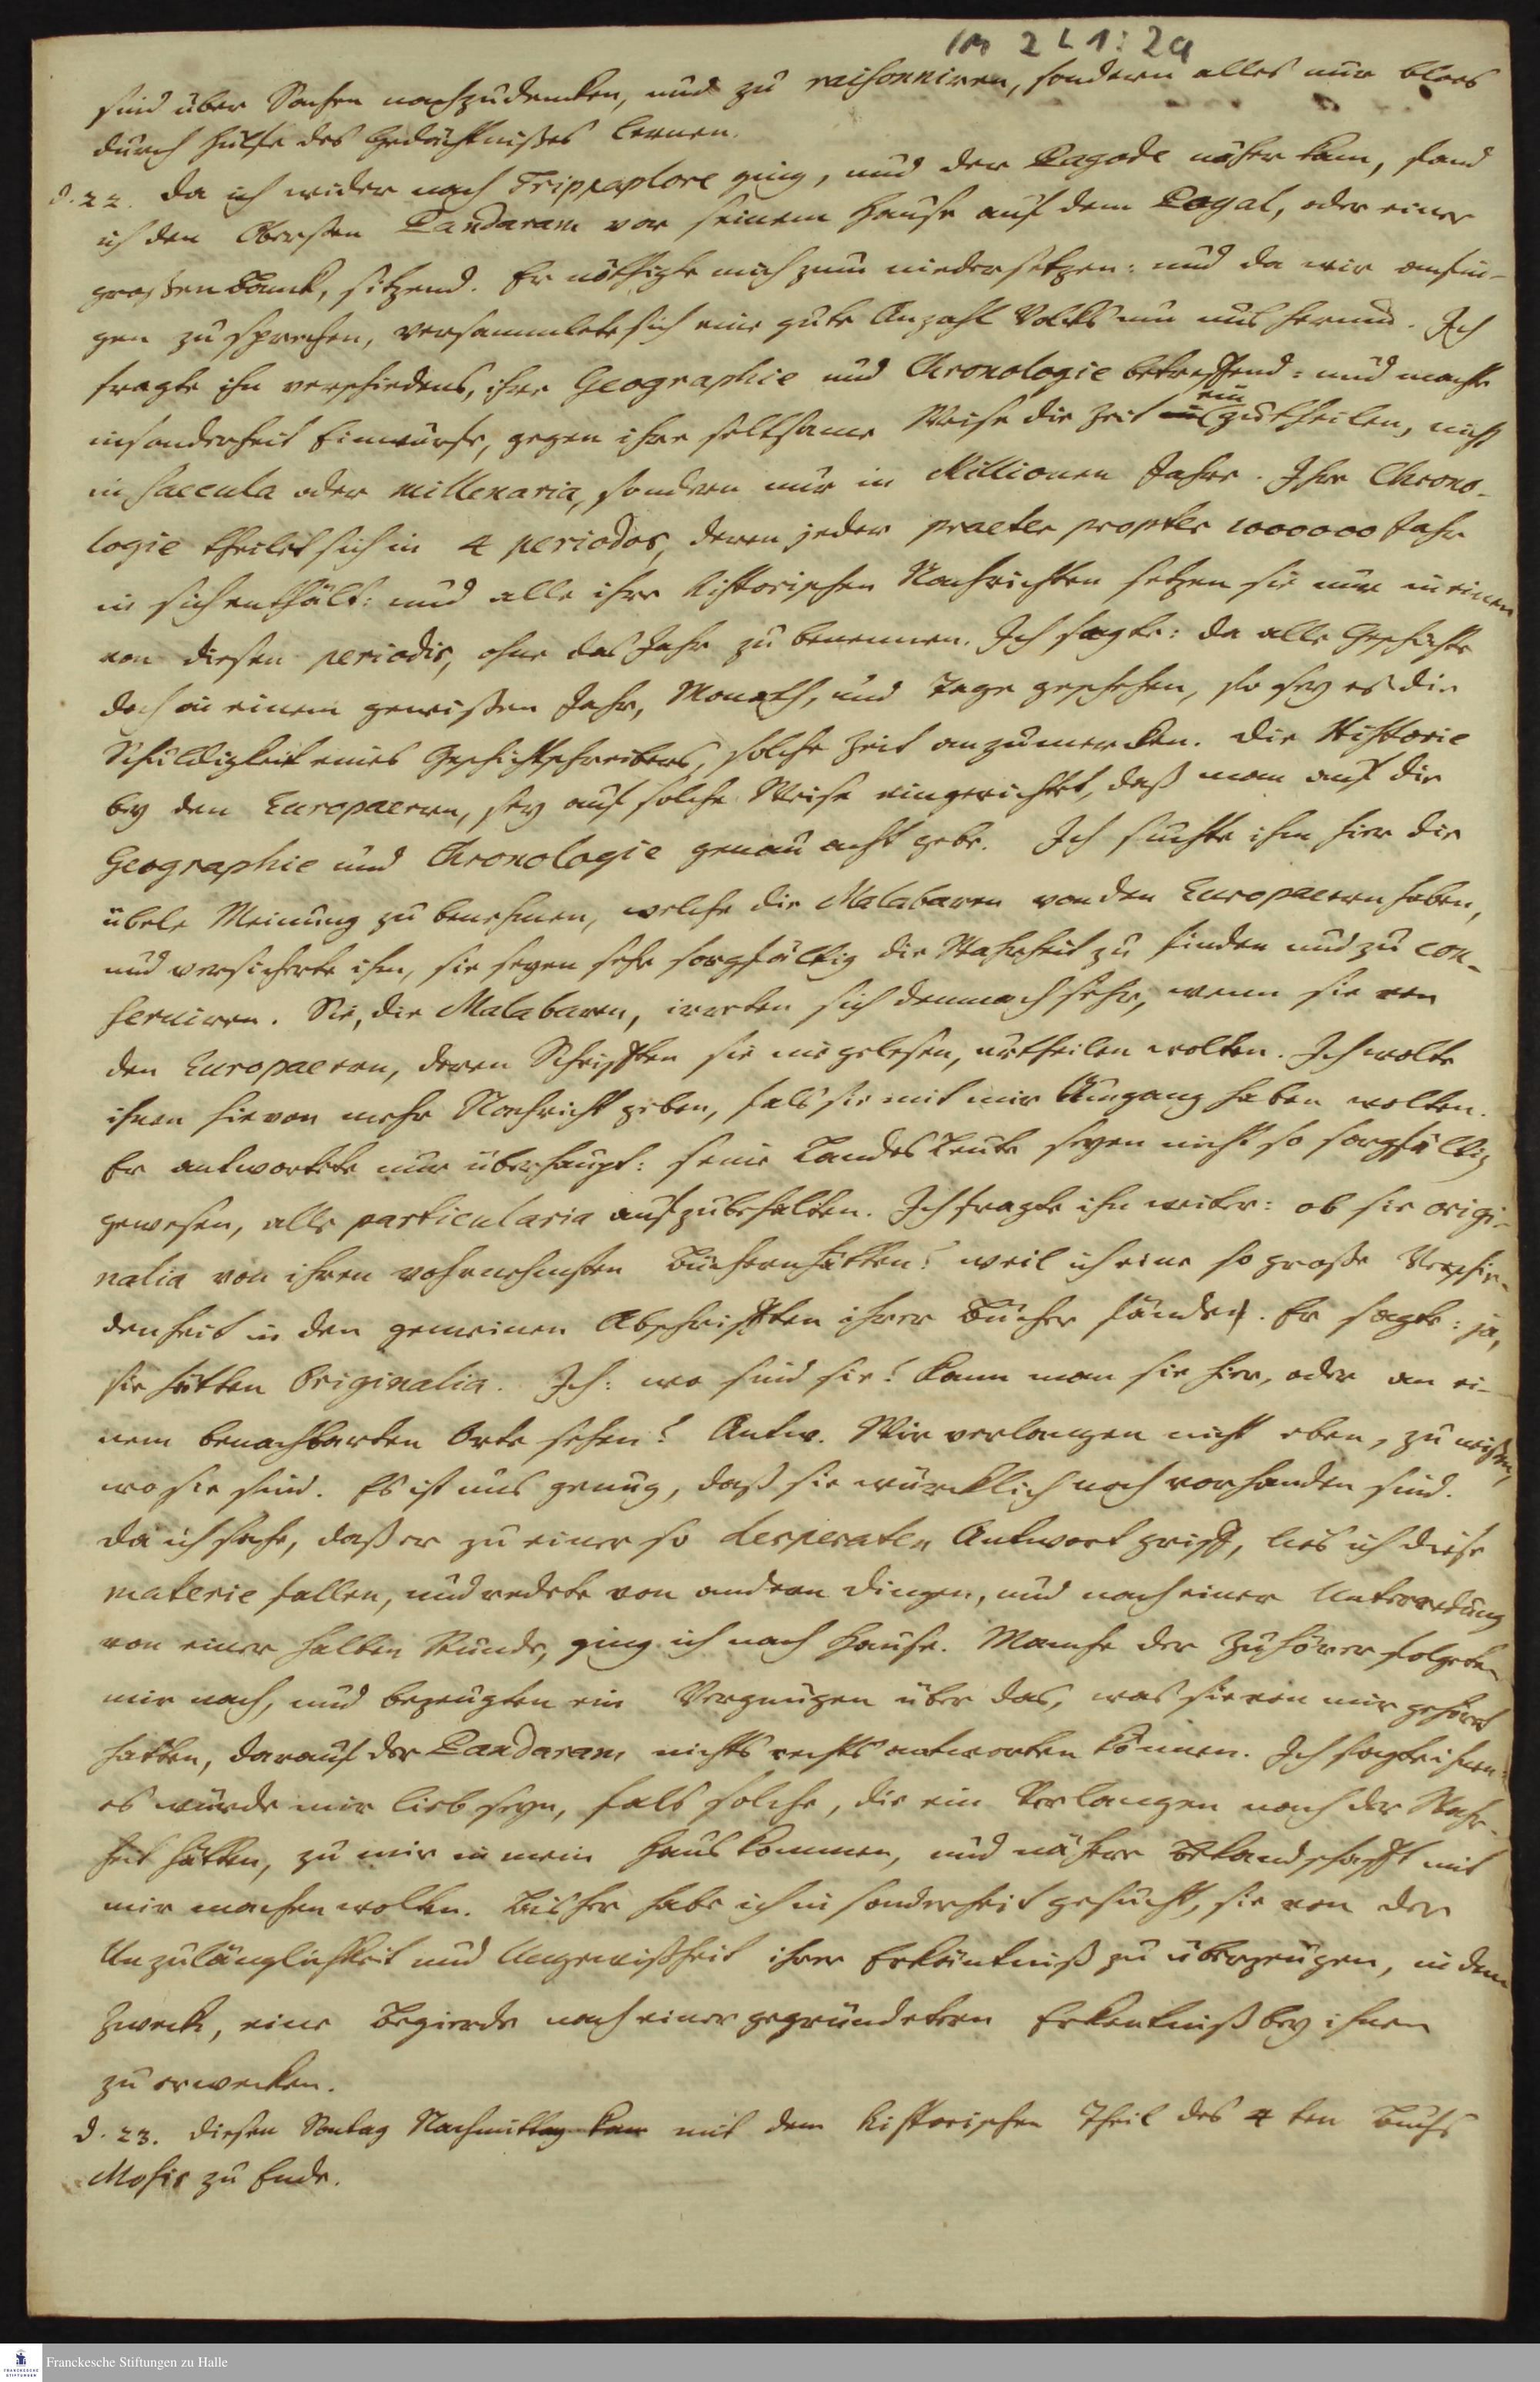 1M 2 L 1:29
sind über Sachen nachzudencken, und zu raisonniren, sondern alles nur blos
durch Hülfe des Gedächtnißes lernen.
d. 22. Da ich wider nach Trippaplore ging, und der Pagode näher kam, fand
ich den Obersten Pandaram vor seinem Hause auf dem Poyal, oder einer
großen Banck, sitzend. Er nöthigte mich zum niedersetzen: und da wir anfin-
gen zu sprechen, versammlete sich eine gute Anzahl Volcks um uns herum. Ich
fragte ihn verschiedens, ihre Geographie und Chronologie betreffend: und machte
insonderheit Einwürfe, gegen ihre seltsame Weise die Zeit einzutheilen, nicht
in saecula oder millenaria, sondern nur in Millionen Jahre. Ihre Chrono-
logie theilet sich in 4 periodos, deren jeder praeter propter 1000000 Jahr
in sich enthält: und alle ihre historischen Nachrichten setzen sie nur in einen
von diesen periodis, ohne das Jahr zu benennen. Ich sagte: da alle Geschichte
doch in einem gewißen Jahr, Monath, und Tage geschehen, so sey es die
Schuldigkeit eines Geschichtschreibers, solche Zeit anzumercken. Die Historie
bey den Europaeern, sey auf solche Weise eingerichtet, daß man auf die
Geographie und Chronologie genau acht gebe. Ich suchte ihm hier die
übele Meinung zu benehmen, welche die Malabaren von den Europaeern haben,
und versicherte ihm, sie seyen sehr sorgfältig die Wahrheit zu finden und zu con-
serviren. Sie, die Malabaren, irreten sich demnach sehr, wenn sie von
den Europaeern, deren Schrifften sie nie gelesen, urtheilen wolten. Ich wolte
ihnen hievon mehr Nachricht geben, fals sie mit mir Umgang haben wolten.
Er antwortete nur überhaupt: seine Landes Leute seyen nicht so sorgfältig
gewesen, alle particularia aufzubehalten. Ich fragte ihn weiter: ob sie origi-
nalia von ihren vohrnehmsten Büchern hätten? weil ich eine so große Verschie-
denheit in den gemeinen Abschrifften ihrer Bücher fände. Er sagte: ja,
sie hätten Originalia. Ich: wo sind sie? kann man sie hier, oder an ei-
nem benachbarten Orte sehen? Antw. Wir verlangen nicht eben, zu wißen,
wo sie sind. Es ist uns genug, daß sie würcklich noch vorhanden sind.
Da ich sahe, daß er zu einer so desperaten Antwort griff, lies ich diese
materie fallen, und redete von andern Dingen, und nach einer Unterredung
von einer halben Stunde, ging ich nach Hause. Manche der Zuhörer folgeten
mir nach, und bezeugten ein Vergnügen über das, was sie von mir gehöret
hatten, darauf der Pandaram nichts rechts antworten können. Ich sagte ihnen:
es würde mir lieb seyn, fals solche, die ein Verlangen nach der Wahr-
heit hätten, zu mir in mein Haus kommen, und nähere Bekandschafft mit
mir machen wolten. Bisher habe ich insonderheit gesucht, sie von der
Unzulänglichkeit und Ungewißheit ihrer Erkäntniß zu überzeugen, in dem
Zweck, eine Begierde nach einer gegründetern Erkentniß bey ihnen
zu erwecken.
d. 23. Diesen Sontag Nachmittag kam mit dem historischen Theil des 4 ten Buchs
Mosis zu Ende.
FRANCKESCHE STIFTUNGEN
Franckesche Stiftungen zu Halle